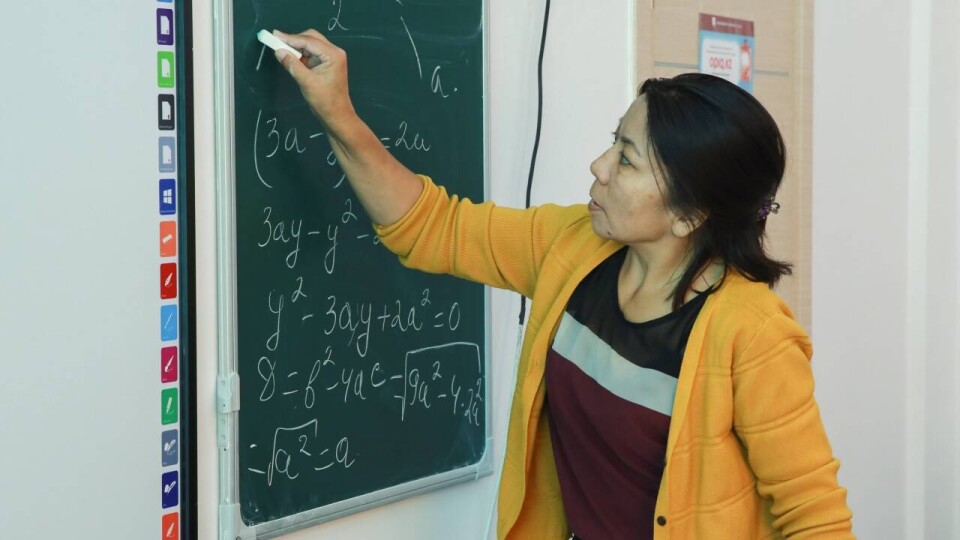 2
a.
(3a - y) = 2a
3ay - y² - 2
y² - 3ay + 2a² = 0
D = b² - 4ac = √9a² - 4·2a²
= √a² = a